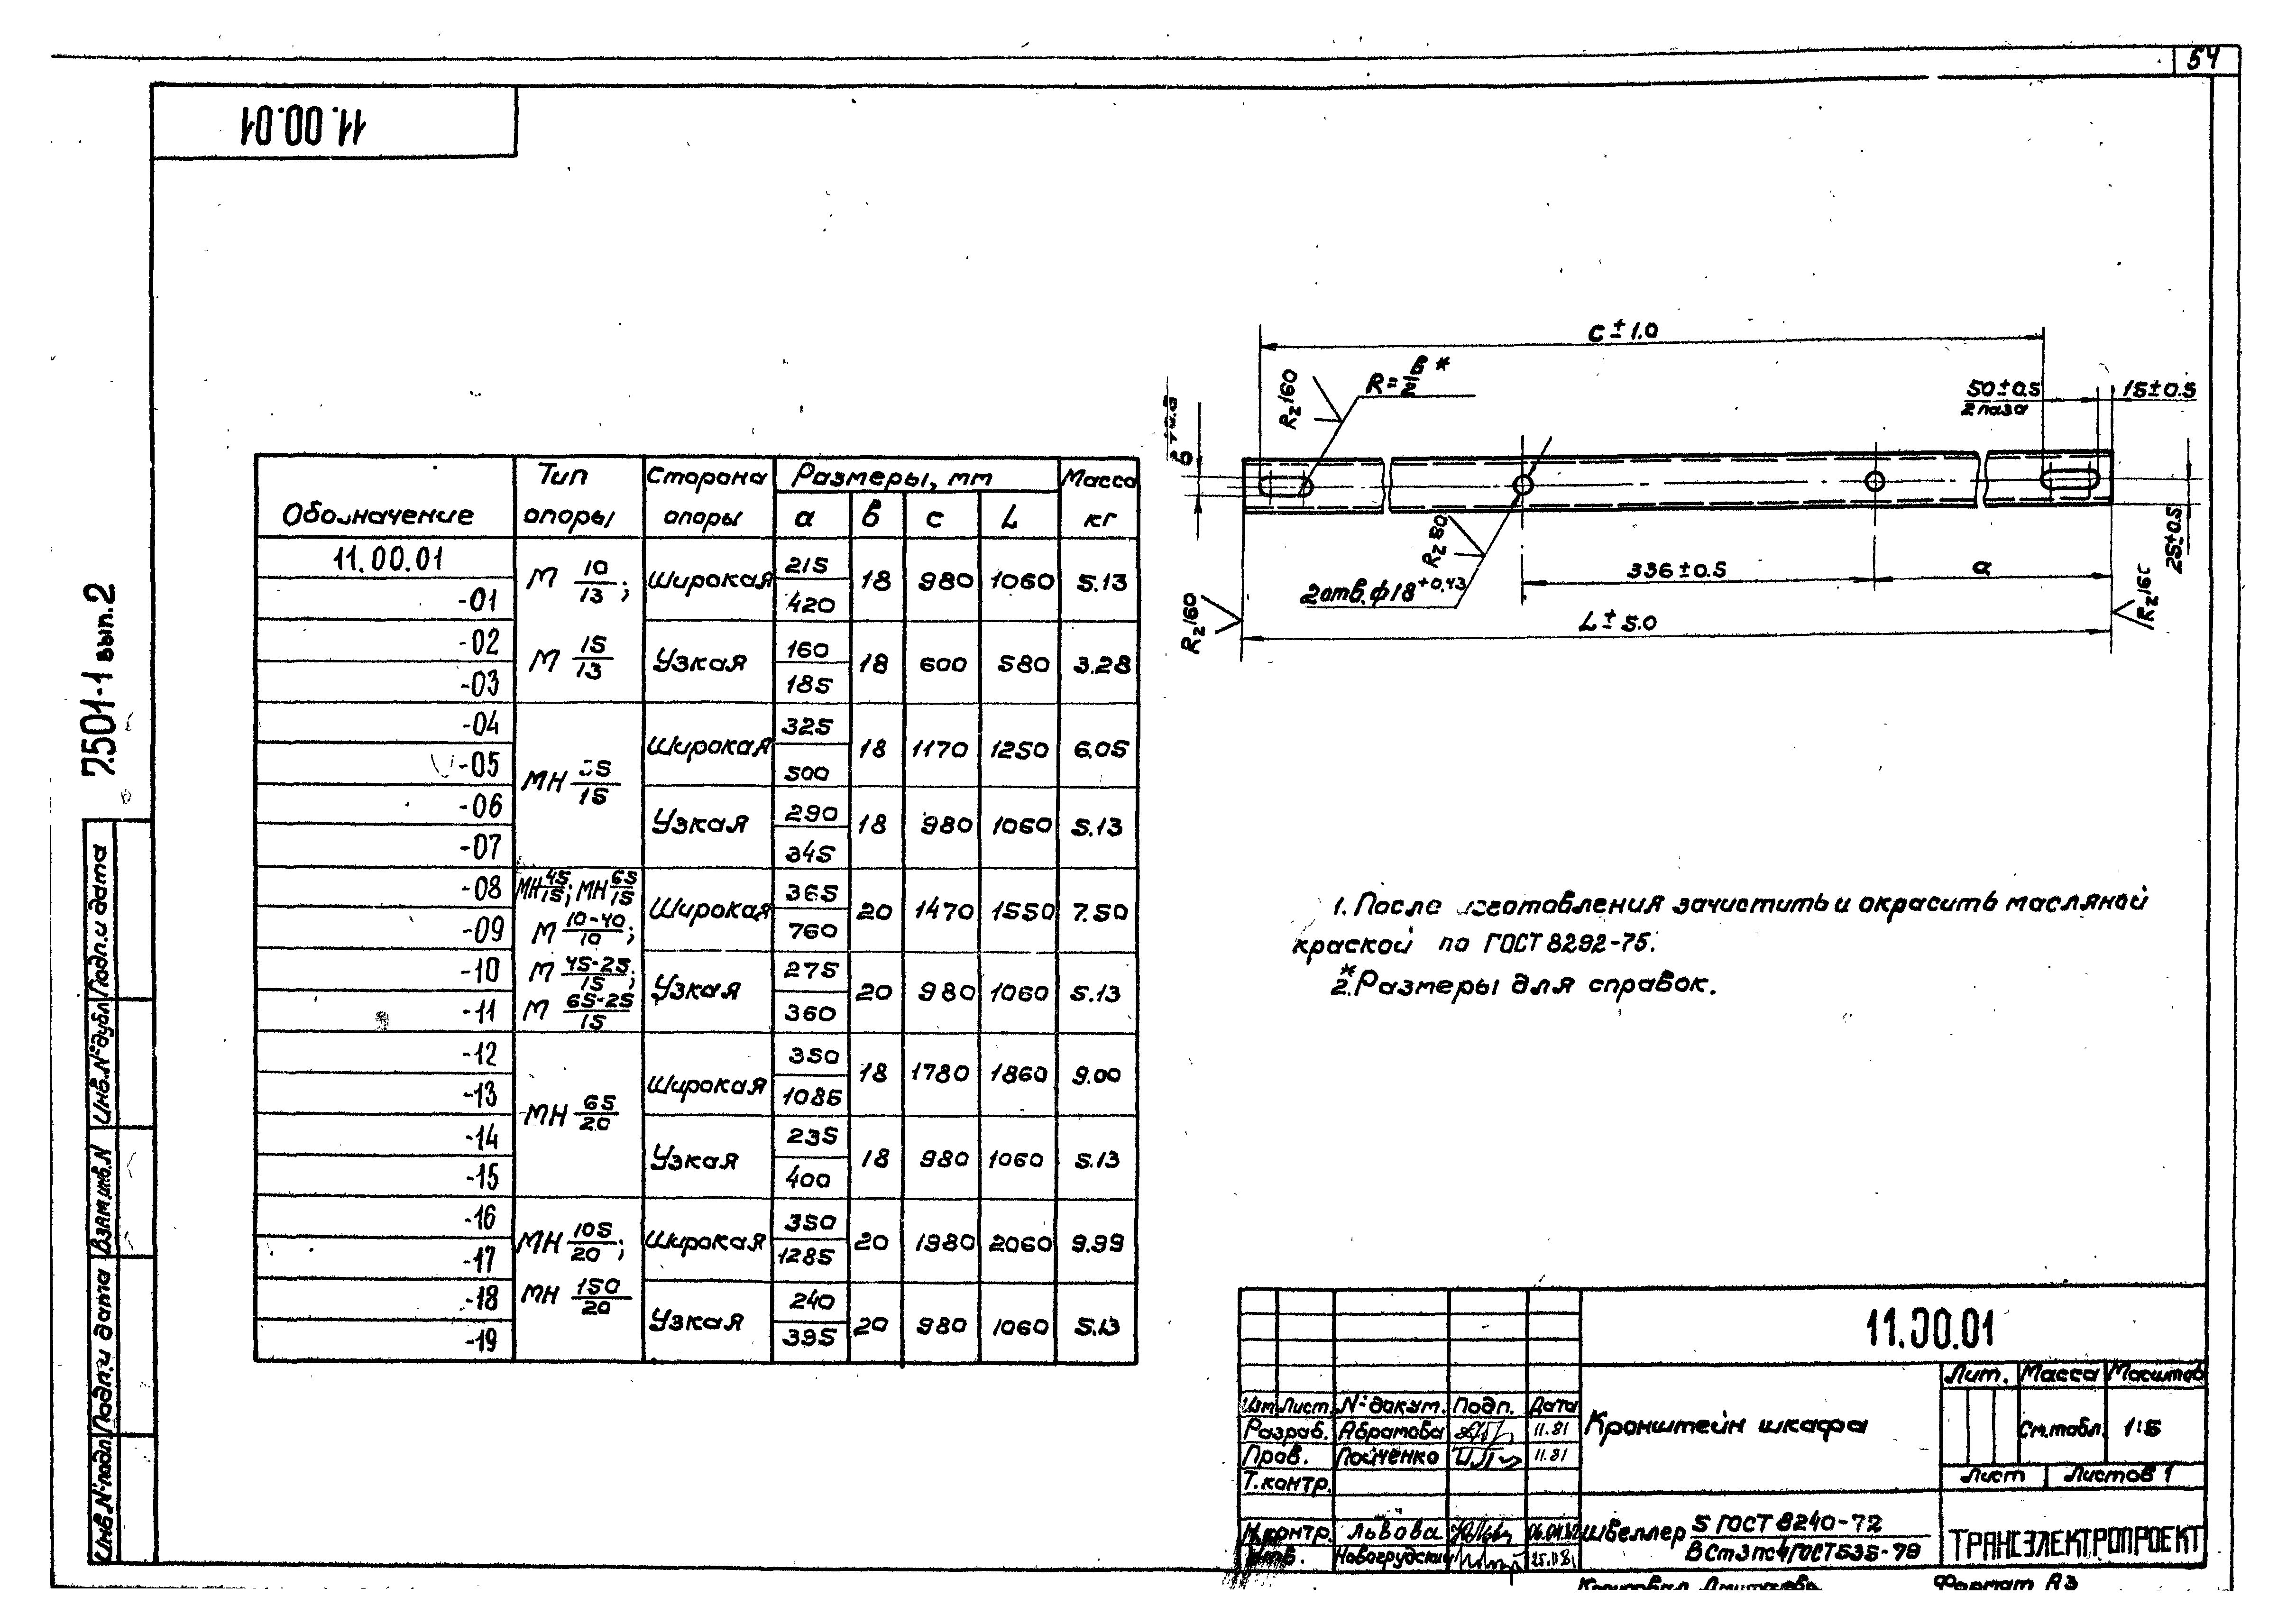 54
11.00.01
7.501-1 вып.2
Инв.№ подл. Подп. и дата Взам.инв.N Инв.№ дубл. Подп. и дата
Обозначение Тип опоры Сторона опоры Размеры, мм Масса кг
а в с L
11.00.01 М 10/13; Широкая 215 18 980 1060 5.13
-01 420
-02 М 15/13 Узкая 160 18 600 580 3.28
-03 185
-04 Широкая 325 18 1170 1250 6.05
-05 МН /15 500
-06 Узкая 290 18 980 1060 5.13
-07 345
-08 МН 45/15; МН 65/15 Широкая 365 20 1470 1550 7.50
-09 М 10-40/10; 760
-10 М 45-25/15; Узкая 275 20 980 1060 5.13
-11 М 65-25/15 360
-12 Широкая 350 18 1780 1860 9.00
-13 МН 65/20 1085
-14 Узкая 235 18 980 1060 5.13
-15 400
-16 МН 105/20; Широкая 350 20 1980 2060 9.99
-17 1285
-18 МН 150/20 Узкая 240 20 980 1060 5.13
-19 395
с ± 1.0
R = в/2 *
Rz160
50±0.5
2 паза
15±0.5
25±0.5
Rz80
2 отв. ф18 +0,43
336±0.5
а
L ± 5.0
Rz160
1. После изготовления зачистить и окрасить масляной
краской по ГОСТ 8292-75.
2.* Размеры для справок.
11.00.01
Кронштейн шкафа
Лит. Масса Масштаб
См.табл. 1:5
Лист Листов 1
Изм. Лист. №докум. Подп. Дата
Разраб. Абрамова 11.81
Пров. 11.81
Т.контр.
Н.контр. Львова
Утв. Новогрудский
Швеллер 5 ГОСТ 8240-72
ВСт3пс4 ГОСТ 535-79
ТРАНСЭЛЕКТРОПРОЕКТ
Копировал Формат А3